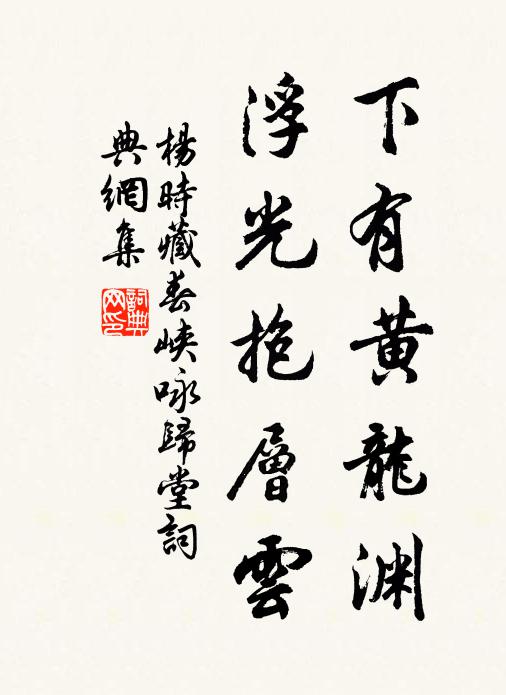 下有黄龍渊
浮光抱層雲
楊時藏春峡咏歸堂詞
典網集
詞典网印